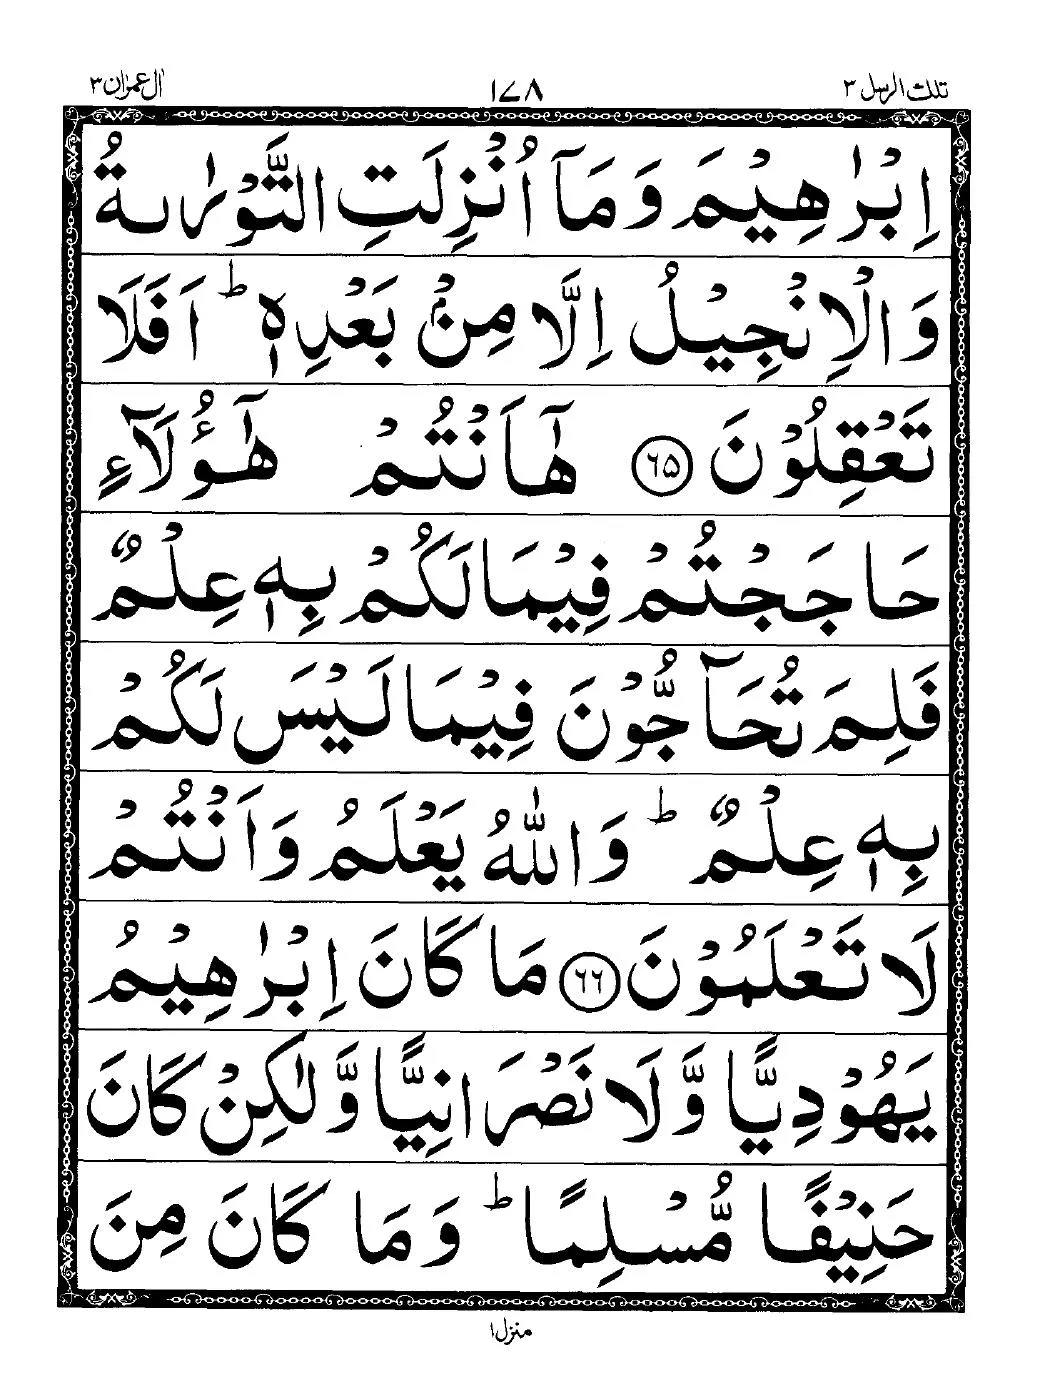 تلك الرسل ٣ ١٧٨ اٰل عمرٰن ٣
اِبْرٰهِيْمَ وَمَآ اُنْزِلَتِ التَّوْرٰىةُ
وَالْاِنْجِيْلُ اِلَّا مِنْۢ بَعْدِهٖ ؕ اَفَلَا
تَعْقِلُوْنَ ﴿٦٥﴾ هٰۤاَنْتُمْ هٰٓؤُلَآءِ
حَاجَجْتُمْ فِيْمَا لَكُمْ بِهٖ عِلْمٌ
فَلِمَ تُحَآجُّوْنَ فِيْمَا لَيْسَ لَكُمْ
بِهٖ عِلْمٌ ؕ وَاللّٰهُ يَعْلَمُ وَاَنْتُمْ
لَا تَعْلَمُوْنَ ﴿٦٦﴾ مَا كَانَ اِبْرٰهِيْمُ
يَهُوْدِيًّا وَّلَا نَصْرَانِيًّا وَّلٰكِنْ كَانَ
حَنِيْفًا مُّسْلِمًا ؕ وَمَا كَانَ مِنَ
منزل ١